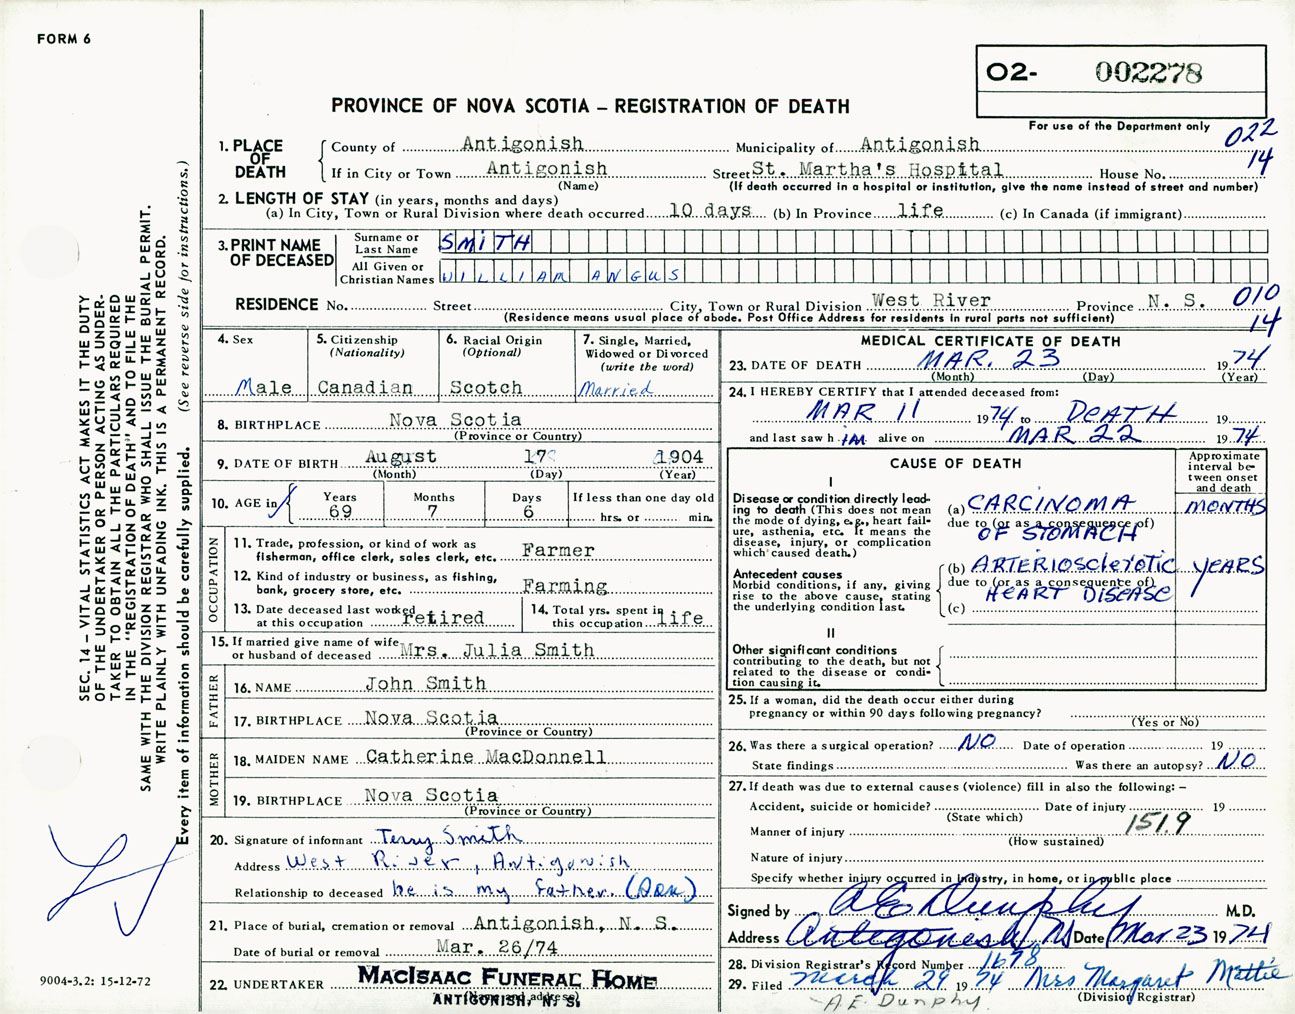 FORM 6
O2- 002278
PROVINCE OF NOVA SCOTIA – REGISTRATION OF DEATH
For use of the Department only
022
14
1. PLACE OF DEATH
County of Antigonish Municipality of Antigonish
If in City or Town Antigonish Street St. Martha's Hospital House No.
(Name) (If death occurred in a hospital or institution, give the name instead of street and number)
2. LENGTH OF STAY (in years, months and days)
(a) In City, Town or Rural Division where death occurred 10 days (b) In Province life (c) In Canada (if immigrant)
3. PRINT NAME OF DECEASED
Surname or Last Name SMITH
All Given or Christian Names WILLIAM ANGUS
RESIDENCE No. Street City, Town or Rural Division West River Province N. S. 010
(Residence means usual place of abode. Post Office Address for residents in rural parts not sufficient) 14
4. Sex
Male
5. Citizenship
(Nationality)
Canadian
6. Racial Origin
(Optional)
Scotch
7. Single, Married, Widowed or Divorced
(write the word)
Married
8. BIRTHPLACE Nova Scotia
(Province or Country)
9. DATE OF BIRTH August 17 1904
(Month) (Day) (Year)
10. AGE in Years Months Days If less than one day old
69 7 6 hrs. or min.
OCCUPATION
11. Trade, profession, or kind of work as
fisherman, office clerk, sales clerk, etc. Farmer
12. Kind of industry or business, as fishing,
bank, grocery store, etc. Farming
13. Date deceased last worked
at this occupation retired
14. Total yrs. spent in
this occupation life
15. If married give name of wife
or husband of deceased Mrs. Julia Smith
FATHER
16. NAME John Smith
17. BIRTHPLACE Nova Scotia
(Province or Country)
MOTHER
18. MAIDEN NAME Catherine MacDonnell
19. BIRTHPLACE Nova Scotia
(Province or Country)
20. Signature of informant Terry Smith
Address West River, Antigonish
Relationship to deceased he is my father. (Son)
21. Place of burial, cremation or removal Antigonish, N. S.
Date of burial or removal Mar. 26/74
22. UNDERTAKER MACISAAC FUNERAL HOME
(Name and address)
ANTIGONISH, N. S.
MEDICAL CERTIFICATE OF DEATH
23. DATE OF DEATH MAR. 23 1974
(Month) (Day) (Year)
24. I HEREBY CERTIFY that I attended deceased from:
MAR 11 1974 to DEATH 19
and last saw h im alive on MAR 22 1974
CAUSE OF DEATH
Approximate interval between onset and death
I
Disease or condition directly leading to death (This does not mean the mode of dying, e.g., heart failure, asthenia, etc. It means the disease, injury, or complication which caused death.)
(a) CARCINOMA MONTHS
due to (or as a consequence of)
OF STOMACH
Antecedent causes
Morbid conditions, if any, giving rise to the above cause, stating the underlying condition last.
(b) ARTERIOSCLEROTIC YEARS
due to (or as a consequence of)
HEART DISEASE
(c)
II
Other significant conditions
contributing to the death, but not related to the disease or condition causing it.
25. If a woman, did the death occur either during
pregnancy or within 90 days following pregnancy?
(Yes or No)
26. Was there a surgical operation? NO Date of operation 19
State findings Was there an autopsy? NO
27. If death was due to external causes (violence) fill in also the following: –
Accident, suicide or homicide? Date of injury 19
(State which)
Manner of injury 151.9
(How sustained)
Nature of injury
Specify whether injury occurred in industry, in home, or in public place
Signed by A E Dunphy M.D.
Address Antigonish NS Date Mar 23 1974
28. Division Registrar's Record Number 1678
29. Filed March 29 1974 Mrs Margaret Mattie
(Division Registrar)
A.E. Dunphy.
SEC. 14 – VITAL STATISTICS ACT MAKES IT THE DUTY
OF THE UNDERTAKER OR PERSON ACTING AS UNDER-
TAKER TO OBTAIN ALL THE PARTICULARS REQUIRED
IN THE "REGISTRATION OF DEATH" AND TO FILE THE
SAME WITH THE DIVISION REGISTRAR WHO SHALL ISSUE THE BURIAL PERMIT.
WRITE PLAINLY WITH UNFADING INK. THIS IS A PERMANENT RECORD.
Every item of information should be carefully supplied. (See reverse side for instructions.)
9004-3.2: 15-12-72